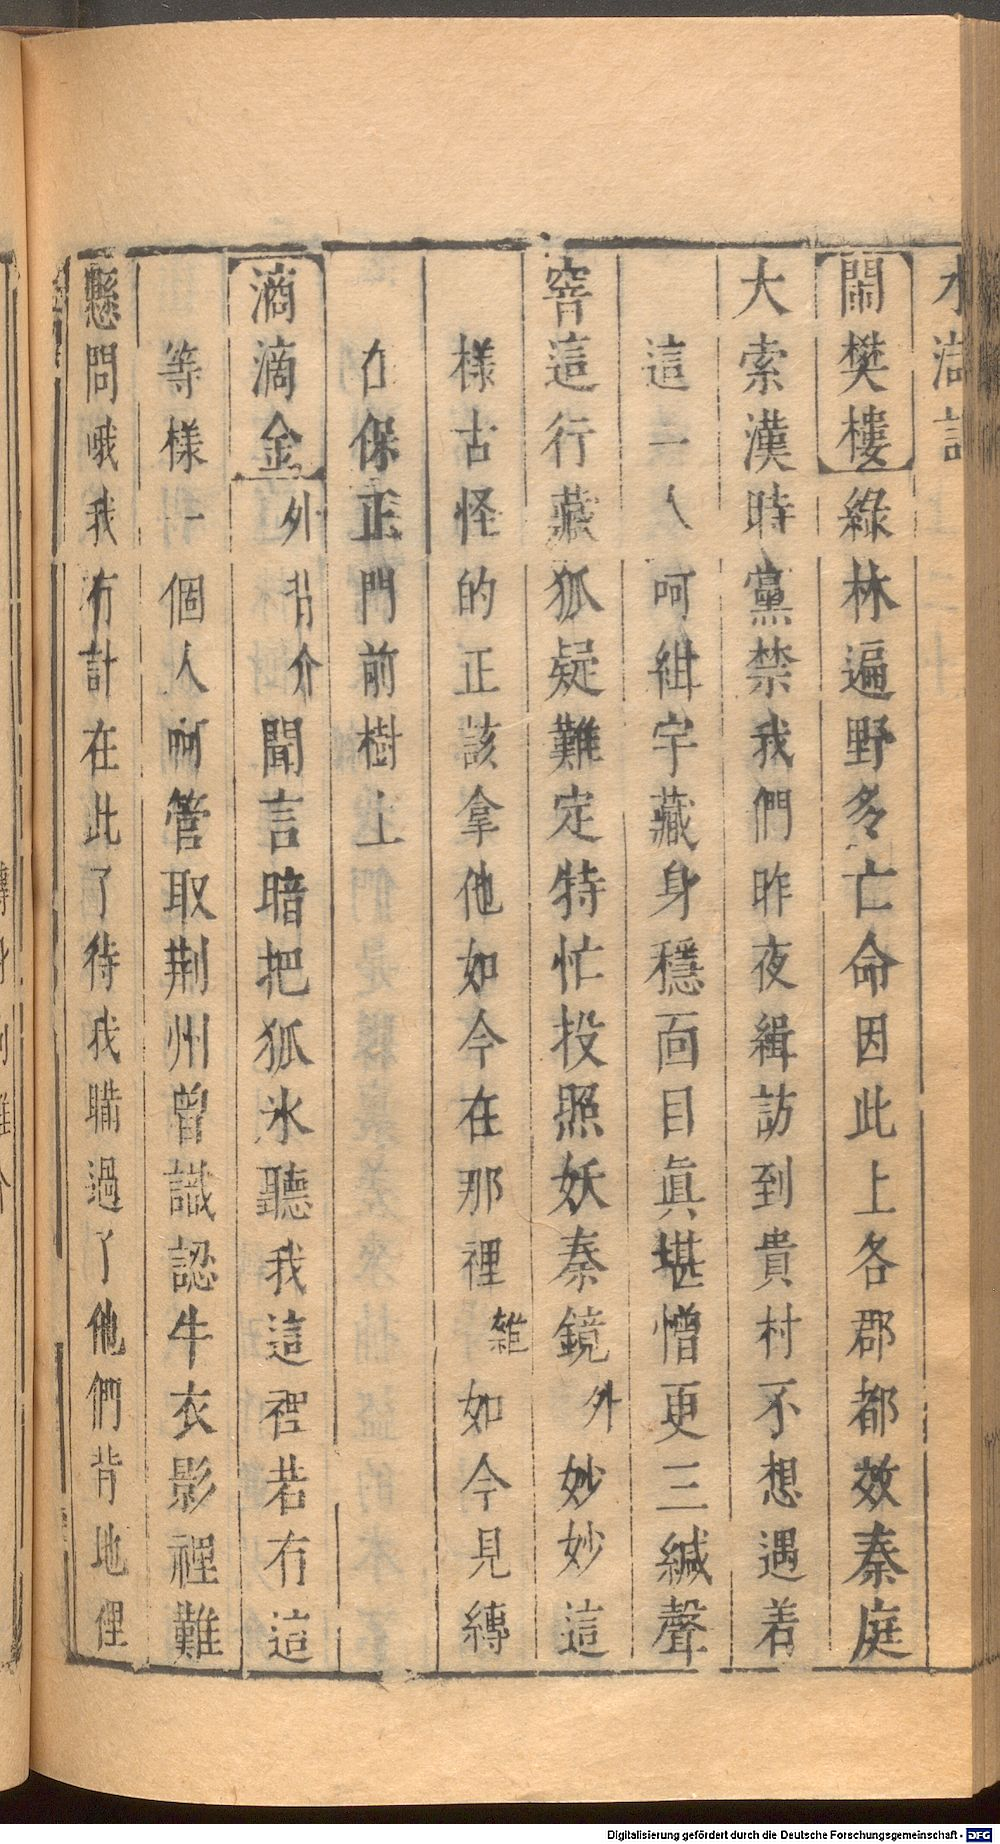 水滸記
鬧樊樓綠林遍野多亡命因此上各郡都效秦庭
大索漢時黨禁我們昨夜緝訪到貴村不想遇着
這一人呵紺宇藏身穩面目眞堪憎更三緘聲
窨這行藏狐疑難定特忙投照妖秦鏡外妙妙這
樣古怪的正該拿他如今在那裡雜如今見縛
在保正門前樹上
滴滴金外背介聞言暗把狐氷聽我這裡若有這
等樣一個人呵管取荆州曾識認牛衣影裡難
懸問哦我有計在此了待我瞞過了他們背地俚
Digitalisierung gefördert durch die Deutsche Forschungsgemeinschaft - DFG